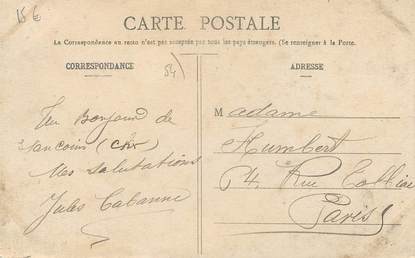 15 €
CARTE POSTALE
La Correspondance au recto n'est pas acceptée par tous les pays étrangers. (Se renseigner à la Poste.
CORRESPONDANCE
ADRESSE
Un Bonjour de
Sancoins (Cher
Mes salutations
Jules Cabanne
Madame
Humbert
Rue
Paris